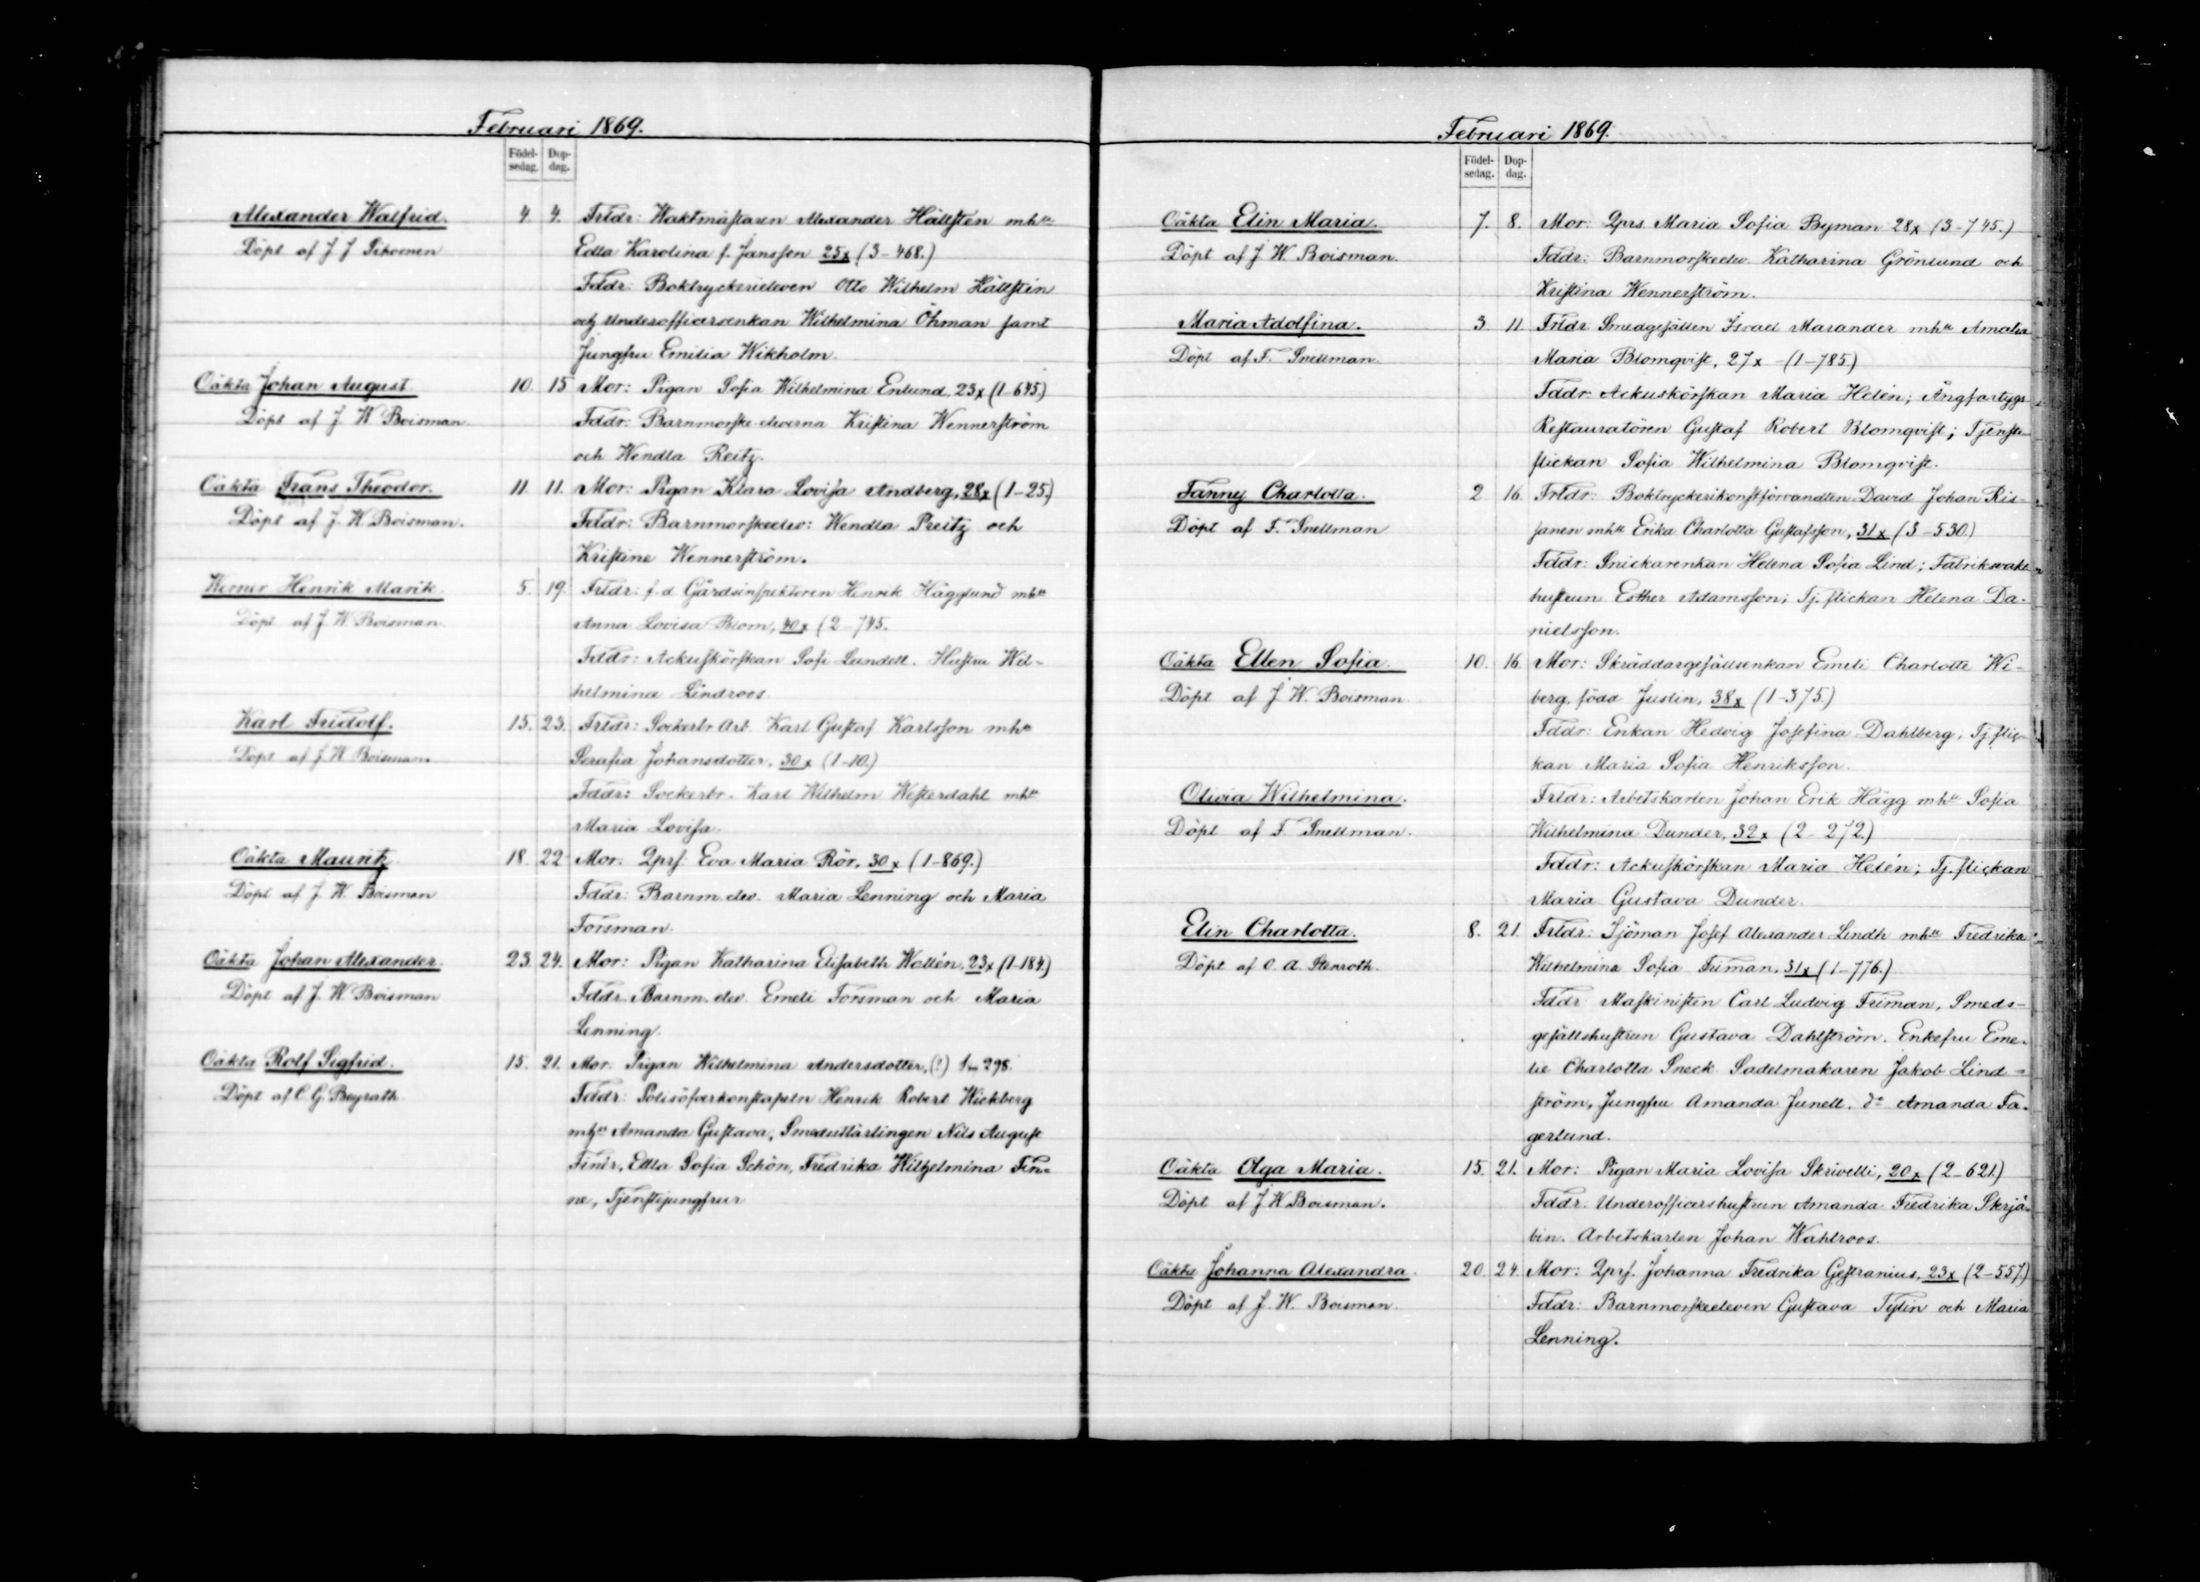 Februari 1869.
Födel-
sedag.
Dop-
dag.
Alexander Walfrid. 4. 4. Frldr: Waktmästaren Alexander Hällstén mhu
Döpt af J J Edla Karolina f. Jansson 25x (3-468.)
Fddr: Boktryckerieleven Otto Wilhelm Hällstén
och Underofficersenkan Wilhelmina Öhman samt
Jungfru Emilia Wikholm.
Oäkta Johan August. 10. 15 Mor: Pigan Sofia Wilhelmina Enlund, 23x (1-645.)
Döpt af J. W. Boisman. Fddr: Barnmorske-eleverna Kristina Wennerström
och Wendla Reitz.
Oäkta Frans Theodor. 11. 11. Mor: Pigan Klara Lovisa Andberg, 28x (1-25.)
Döpt af J. W. Boisman. Fddr: Barnmorskeelev: Wendla Preitz och
Kristine Wennerström.
Werner Henrik Marik. 5. 19. Frldr: f. d. Gårdsinspektoren Henrik Hägglund mhu
Döpt af J. W. Boisman. Anna Lovisa Blom, 40x (2-745.
Fddr: Ackuskörskan Sofi Lundell. Hustru Wil-
helmina Lindroos.
Karl Fridolf. 15. 23. Frldr: Sockerbr. Arb. Karl Gustaf Karlsson mhu
Döpt af J. W. Boisman. Serafia Johansdotter, 30x (1-10.)
Fddr: Sockerbr. Karl Wilhelm Westerdahl mhu
Maria Lovisa.
Oäkta Mauritz. 18. 22 Mor: Qprs. Eva Maria Rör, 30x (1-869.)
Döpt af J. W. Boisman Fddr: Barnm. elev. Maria Lenning och Maria
Forsman.
Oäkta Johan Alexander. 23. 24. Mor: Pigan Katharina Elisabeth Wallén, 23x (1-184.)
Döpt af J. W. Boisman Fddr. Barnm. elev. Emeli Forsman och Maria
Lenning.
Oäkta Rolf Sigfrid. 15. 21. Mor: Pigan Wilhelmina Andersdotter, (?) 1-298.
Döpt af C. G. Beyrath. Fddr: Polisöfverkonstapeln Henrik Robert Wickberg
mhu Amanda Gustava, Smedutlärlingen Nils August
Finér, Edla Sofia Schön, Fredrika Wilhelmina Fin-
ne, Tjenstejungfrur
Februari 1869.
Födel-
sedag.
Dop-
dag.
Oäkta Elin Maria. 7. 8. Mor: Qprs. Maria Sofia Byman 28x (3-745.)
Döpt af J. W. Boisman. Fddr: Barnmorskeelev. Katharina Grönlund och
Kristina Wennerström.
Maria Adolfina. 3. 11. Frldr: Smedgesällen Israel Marander mhu Amalia
Döpt af F. Snellman. Maria Blomqvist, 27x -(1-785.)
Fddr: Ackuskörskan Maria Helén; Ångfartygs
Restauratören Gustaf Robert Blomqvist; Tjenste-
flickan Sofia Wilhelmina Blomqvist.
Fanny Charlotta. 2. 16. Frldr: Boktryckerikonstförvandten David Johan Ris-
Döpt af F. Snellman sanen mhu Erika Charlotta Gustafsson, 31x (3-530.)
Fddr: Snickarenkan Helena Sofia Lind; Fabriksvakt-
hustrun Esther Adamsson; Tj. flickan Helena Da-
nielsson.
Oäkta Ellen Sofia. 10. 16. Mor: Skräddargesällsenkan Emeli Charlotte Wi-
Döpt af J. W. Boisman berg, född Justin, 38x (1-375.)
Fddr: Enkan Hedvig Josefina Dahlberg; Tj. flic-
kan Maria Sofia Henriksson.
Olivia Wilhelmina. Frldr: Arbetskarlen Johan Erik Hägg mhu Sofia
Döpt af F. Snellman. Wilhelmina Dunder, 32x (2-272.)
Fddr: Ackuskörskan Maria Helén; Tj. flickan
Maria Gustava Dunder.
Elin Charlotta. 8. 21. Frldr: Sjöman Josef Alexander Lindh mhu Fredrika
Döpt af O. A. Stenroth. Wilhelmina Sofia Friman, 31x (1-776.)
Fddr: Maskinisten Carl Ludvig Friman, Smeds-
gesällshustrun Gustava Dahlström. Enkefru Eme-
lie Charlotta Sneck. Sadelmakaren Jakob Lind-
ström, Jungfru Amanda Junell. do Amanda Fa-
gerlund.
Oäkta Olga Maria. 15. 21. Mor: Pigan Maria Lovisa Skrivelli, 20x (2-621.)
Döpt af J. W. Boisman. Fddr: Underofficershustrun Amanda Fredrika Skrjä-
bin. Arbetskarlen Johan Wahlroos.
Oäkta Johanna Alexandra. 20. 24. Mor: Qprs. Johanna Fredrika Gestranius, 23x (2-557.)
Döpt af J. W. Boisman. Fddr: Barnmorskeeleven Gustava Tylin och Maria
Lenning.